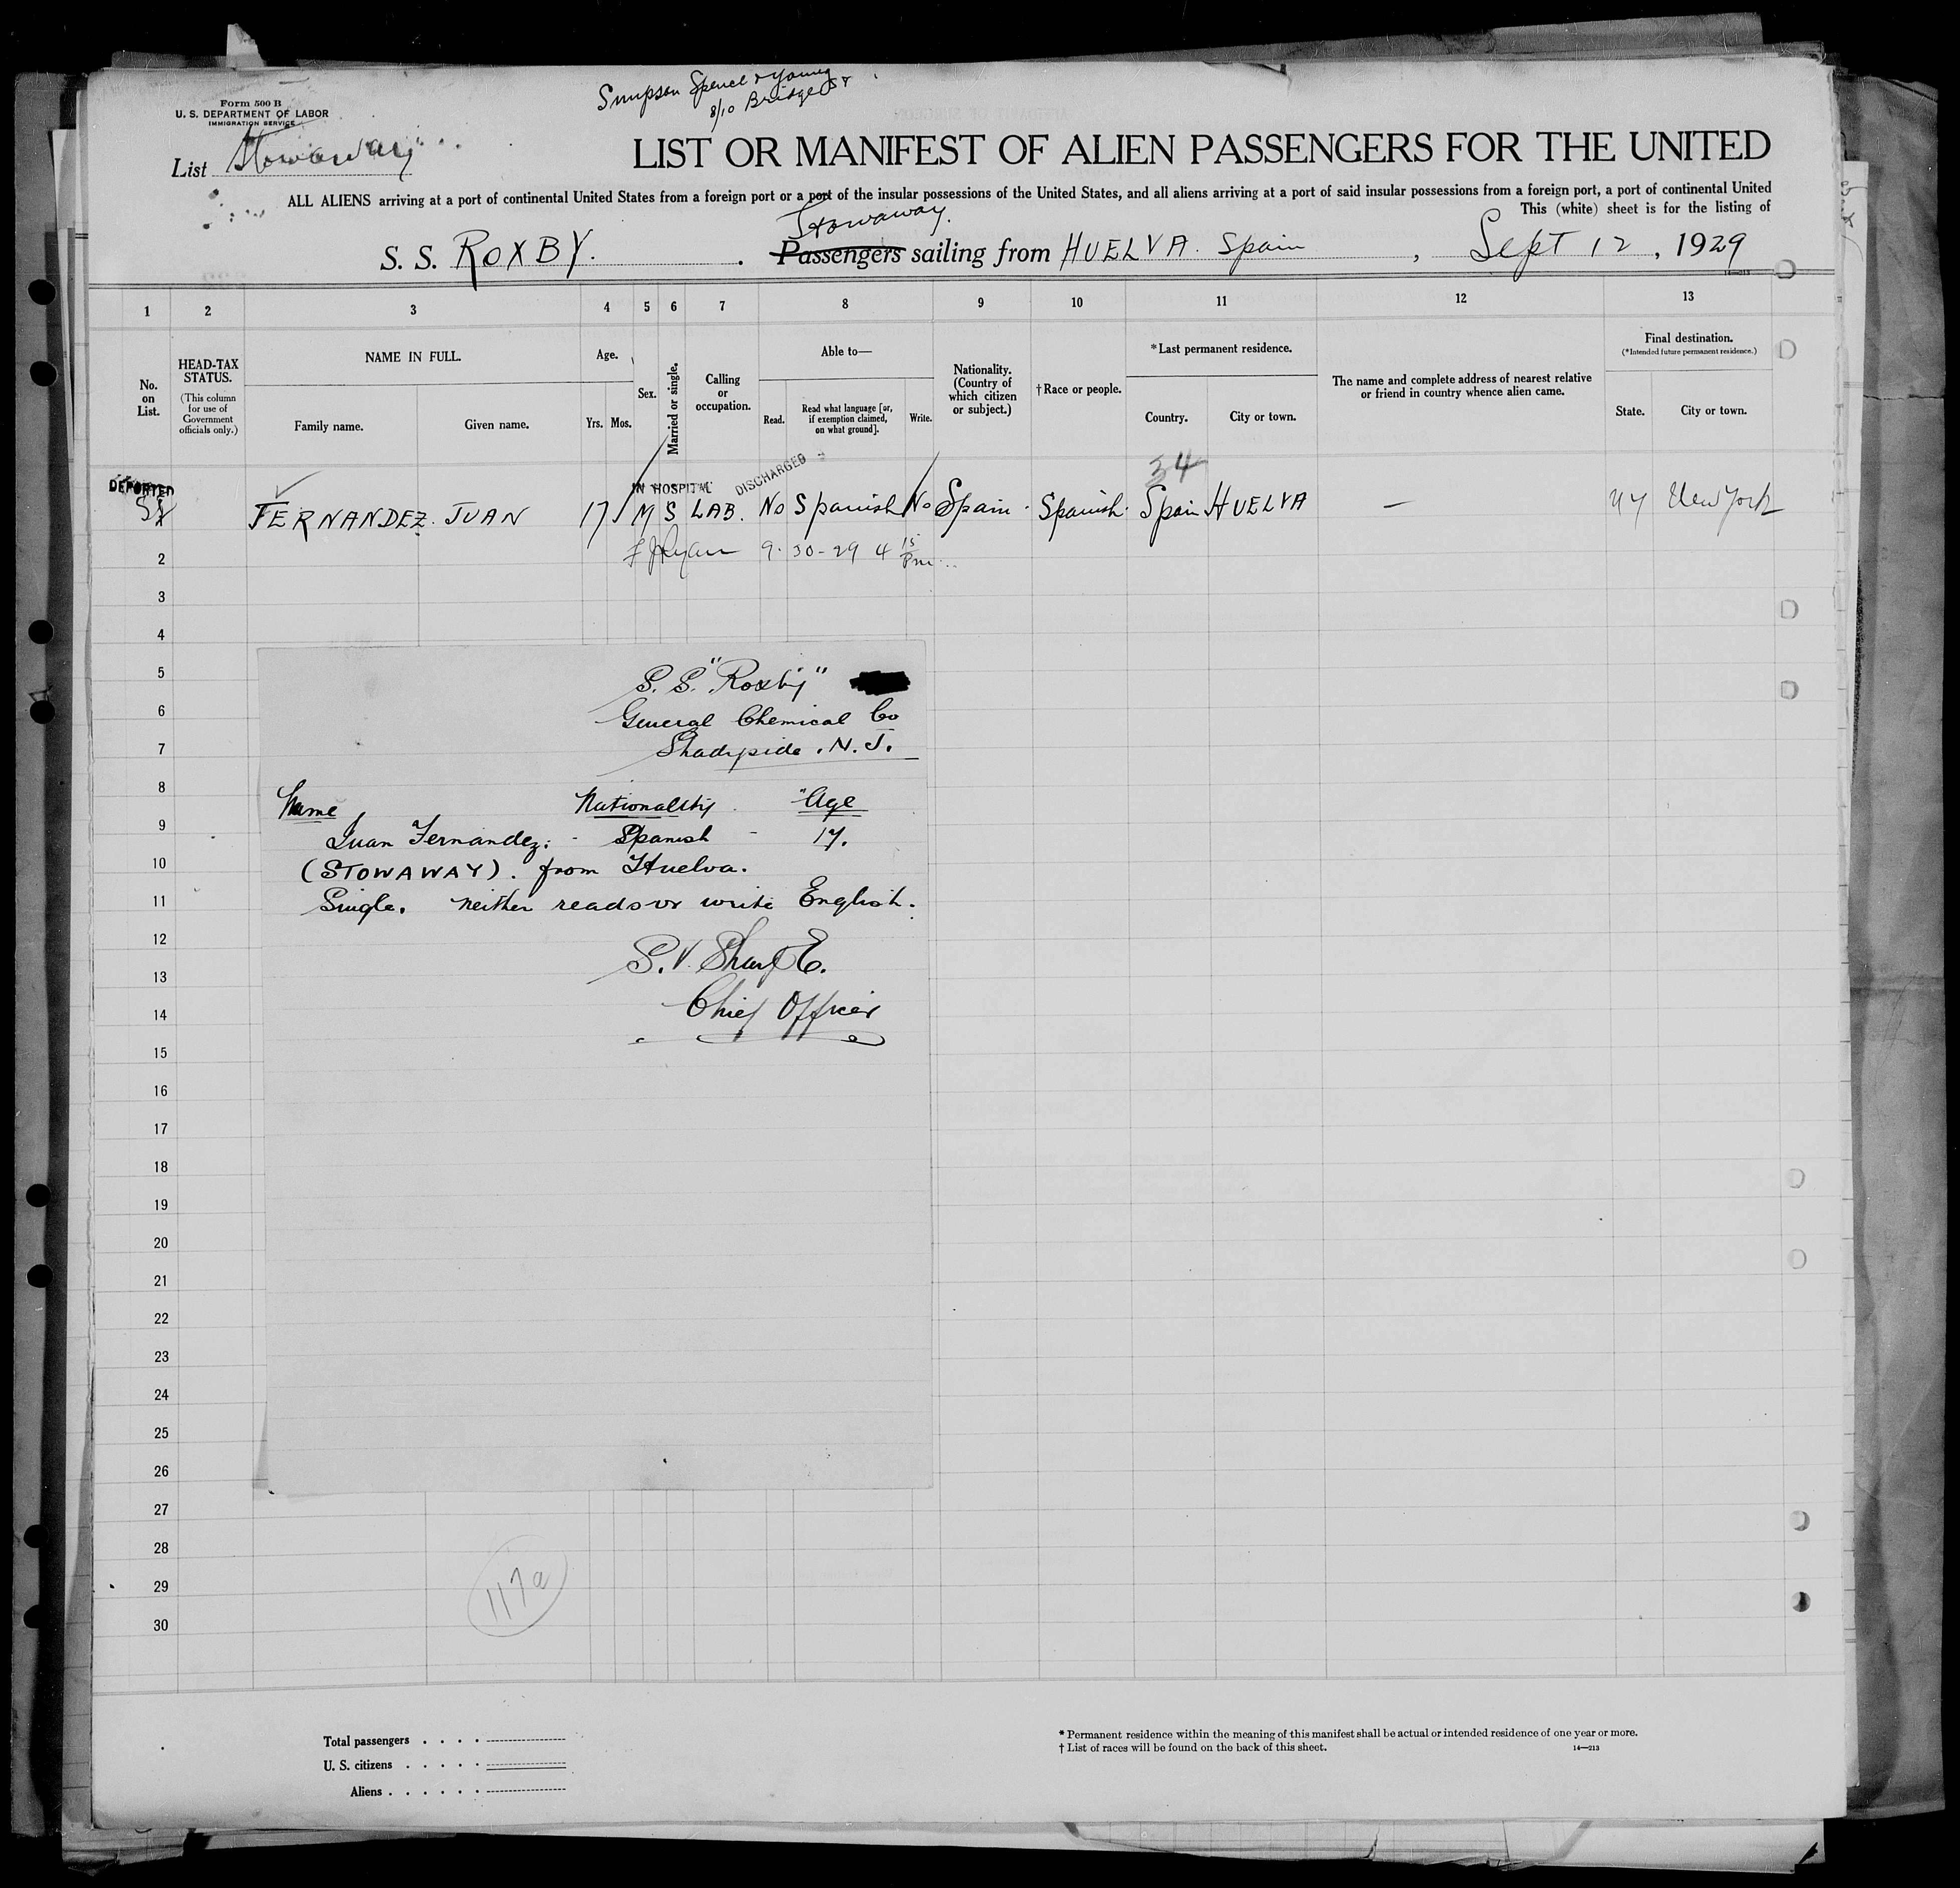 Simpson Spence & Young
8/10 Bridge St
Form 500 B
U. S. DEPARTMENT OF LABOR
IMMIGRATION SERVICE
List Stowaway
LIST OR MANIFEST OF ALIEN PASSENGERS FOR THE UNITED
ALL ALIENS arriving at a port of continental United States from a foreign port or a port of the insular possessions of the United States, and all aliens arriving at a port of said insular possessions from a foreign port, a port of continental United
This (white) sheet is for the listing of
Stowaway.
S. S. ROXBY. Passengers sailing from HUELVA. Spain, Sept 12, 1929
14—213
1 2 3 4 5 6 7 8 9 10 11 12 13
No. on List.
HEAD-TAX STATUS.
(This column for use of Government officials only.)
NAME IN FULL.
Family name. Given name.
Age.
Yrs. Mos.
Sex.
Married or single.
Calling or occupation.
Able to—
Read. Read what language [or, if exemption claimed, on what ground]. Write.
Nationality. (Country of which citizen or subject.)
†Race or people.
*Last permanent residence.
Country. City or town.
The name and complete address of nearest relative or friend in country whence alien came.
Final destination.
(*Intended future permanent residence.)
State. City or town.
34
DEPORTED IN HOSPITAL DISCHARGED
FERNANDEZ. JUAN 17 M S LAB. No Spanish No Spain. Spanish. Spain HUELVA — NY New York
2 F J Ryan 9-30-29 4 15 Pm
3
4
5
6
7
8
9
10
11
12
13
14
15
16
17
18
19
20
21
22
23
24
25
26
27
28
29
30
S. S. "Roxby"
General Chemical Co
Shadyside. N. J.
Name Nationality. Age
Juan Fernandez. - Spanish - 17.
(STOWAWAY). from Huelva.
Single. neither reads or write English.
Chief Officer
117a
Total passengers
U. S. citizens
Aliens
* Permanent residence within the meaning of this manifest shall be actual or intended residence of one year or more.
† List of races will be found on the back of this sheet.
14—213